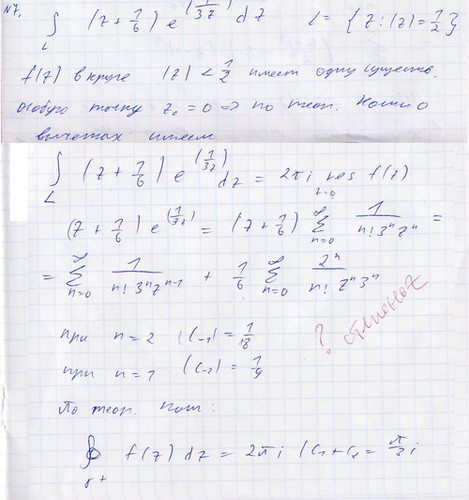 №7. ∫_L (z + 1/6) e^(1/3z) dz L = {z: |z| = 1/2}
f(z) в круге |z| < 1/2 имеет одну существ.
особую точку z₀ = 0 => по теор. Коши о
вычетах имеем
∫_L (z + 1/6) e^(1/3z) dz = 2πi res_{z=0} f(z)
(z + 1/6) e^(1/3z) = (z + 1/6) ∑_{n=0}^∞ 1/(n! 3ⁿ zⁿ) =
= ∑_{n=0}^∞ 1/(n! 3ⁿ zⁿ⁻¹) + 1/6 ∑_{n=0}^∞ 2ⁿ/(n! zⁿ 3ⁿ)
при n = 2 (C₋₁) = 1/18
? отличен от z
при n = 1 (C₋₁) = 1/9
По теор. :
∮_{γ+} f(z) dz = 2πi (C₁ + C₂ = π/3 i